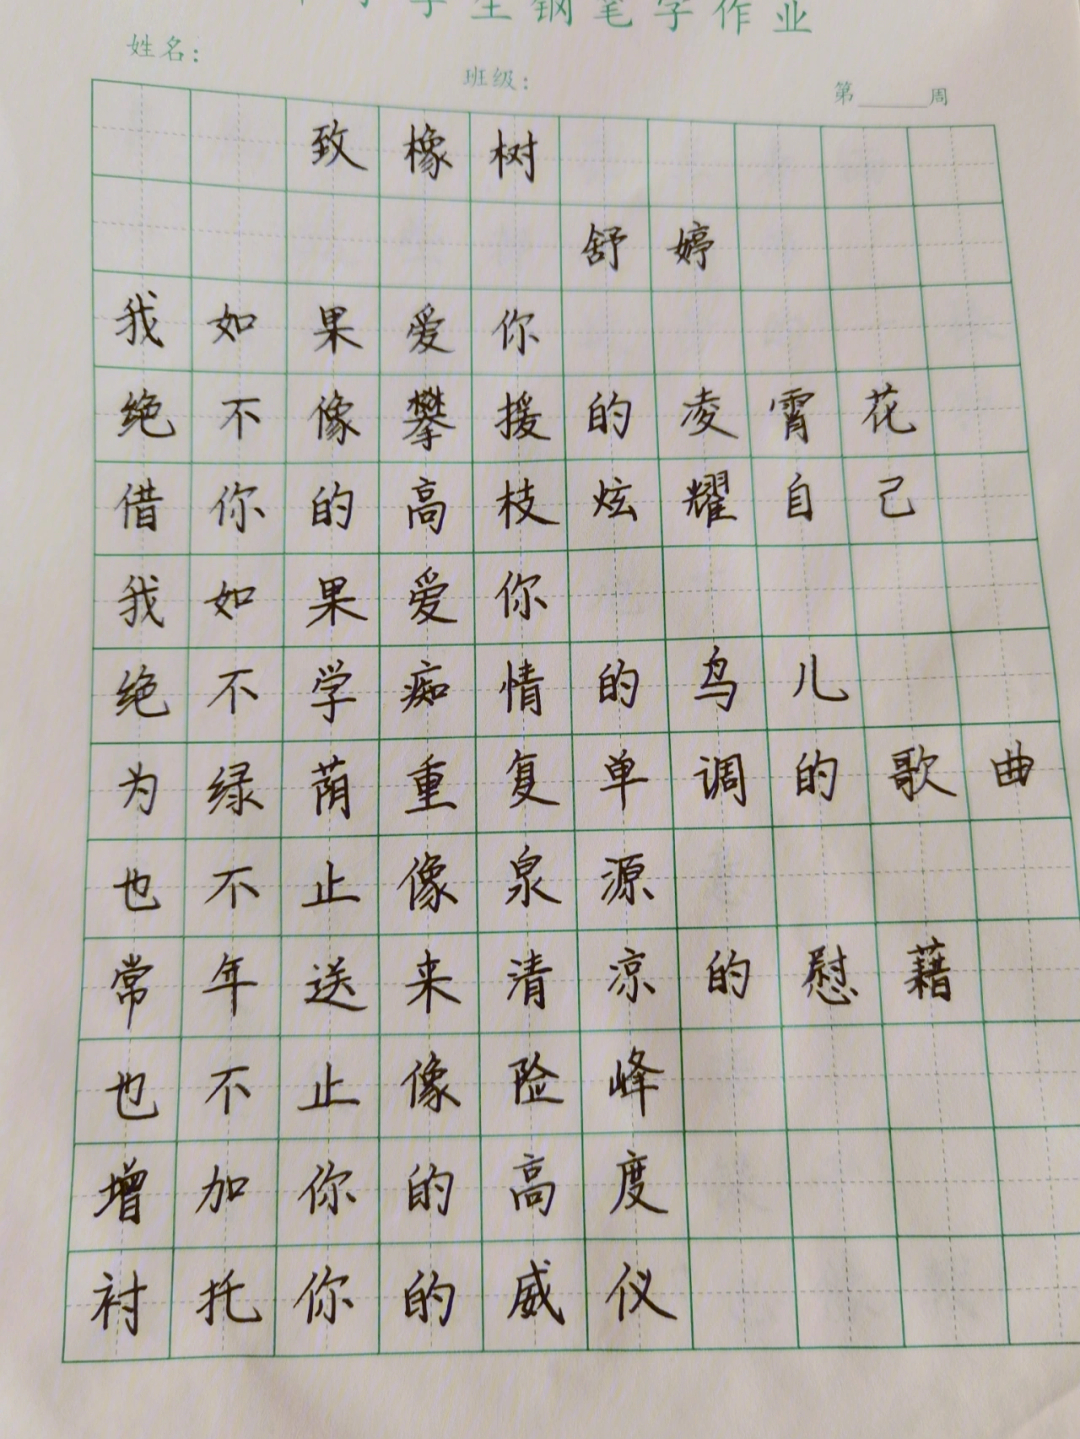 学生钢笔字作业
姓名：
班级：
第______周
致橡树
舒婷
我如果爱你
绝不像攀援的凌霄花
借你的高枝炫耀自己
我如果爱你
绝不学痴情的鸟儿
为绿荫重复单调的歌曲
也不止像泉源
常年送来清凉的慰藉
也不止像险峰
增加你的高度
衬托你的威仪